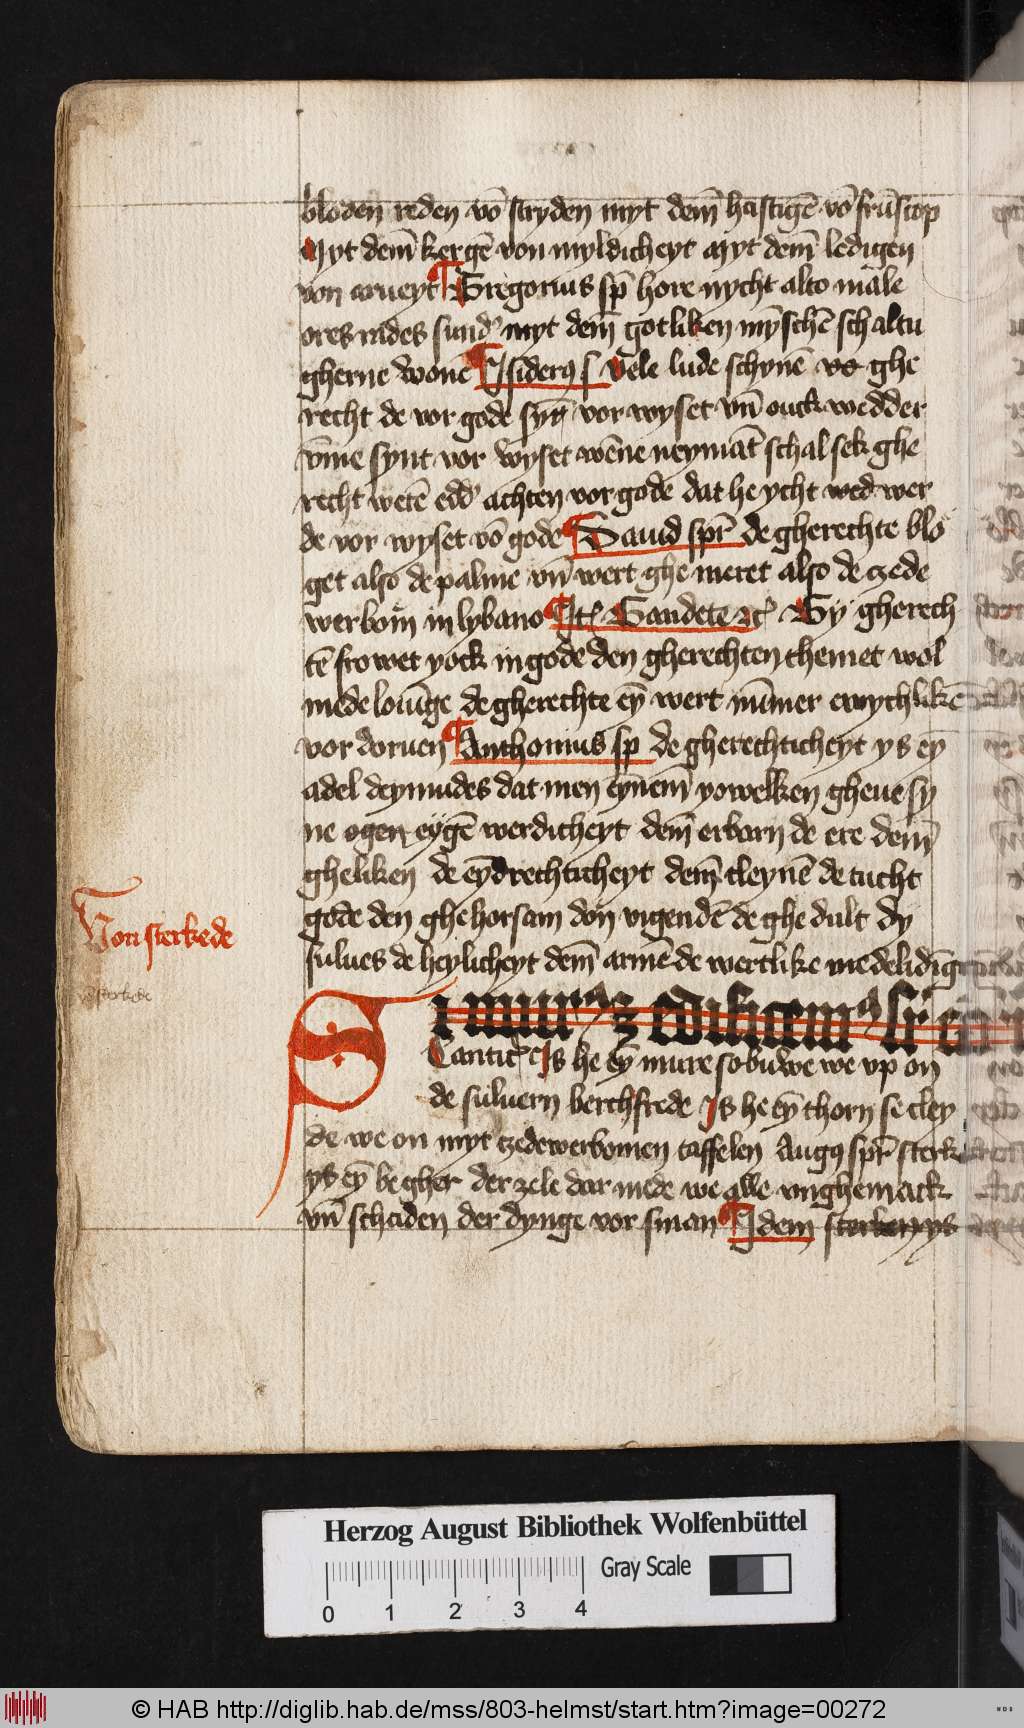 bloden reden vō stryden myt dem̄ hastigē vō frūscop
Myt dem̄ kergē von myldicheyt Myt dem̄ ledigen
von arueyt Gregorius sp̄ hore nycht alto male
ores rades sund' myt dem̄ gotliken mȳschē schaltu
gherne wonē Isiderꝯ s Vele lude schynē vō ghe
recht de vor gode syn̄ vor wyset vn̄ ouck wedder
v̄me synt vor wyset wēne neymāt schal sek ghe
recht wetē edd' achten vor gode dat he ycht wed wer
de vor wyset vō gode Dauid spr̄ de gherechte blo
get also de palme vn̄ wert ghe meret also de czede
werbom̄ in lybano It' Gaudete ꝛc' Gy gherech
tē frowet yock in gode den gherechten themet wol
mede louīge de gherechte eȳ wert nūmer ewychlikē
vor doruen Anthonius sp̄ de gherechticheyt ys eȳ
adel deymudes dat men eynem̄ yowelken gheue sy
ne ogen eygē werdicheyt dem̄ erbarn de ere dem̄
gheliken de eȳdrechticheyt dem̄ cleynē de tucht
gode den ghehorsam don vigendē de ghe dult dy
sulues de heylicheyt dem̄ armē de wertlike medelidīge
Von sterkede
vō sterkede
Si murꝯ ē edificemꝯ sr
Cantic' Is he eȳ mure so buwe we vp on
de suluern berchfrede Is he eȳ thorn se cley
de we on myt czedewerbomen taffelen Augꝯ spr̄ sterk
ys eȳ be gher der zele dar mede we alle vnghemack
vn̄ schaden der dynge vor sman Idem sterken ys
Herzog August Bibliothek Wolfenbüttel
0 1 2 3 4
Gray Scale
© HAB http://diglib.hab.de/mss/803-helmst/start.htm?image=00272